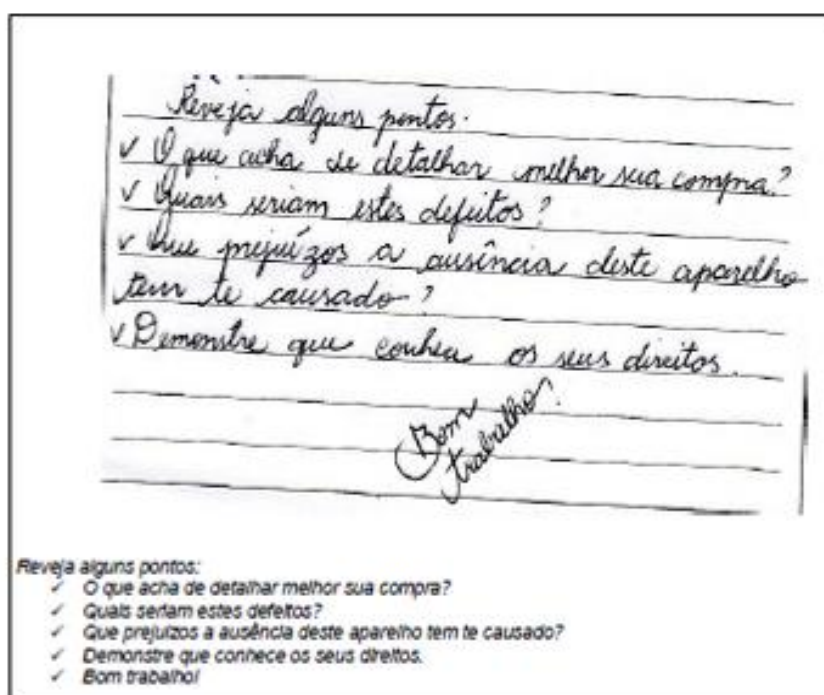 Reveja alguns pontos.
✓ O que acha de detalhar melhor sua compra?
✓ Quais seriam estes defeitos?
✓ Que prejuízos a ausência deste aparelho
tem te causado?
✓ Demonstre que conhece os seus direitos.
Bom
trabalho!
Reveja alguns pontos:
✓ O que acha de detalhar melhor sua compra?
✓ Quais seriam estes defeitos?
✓ Que prejuízos a ausência deste aparelho tem te causado?
✓ Demonstre que conhece os seus direitos.
✓ Bom trabalho!